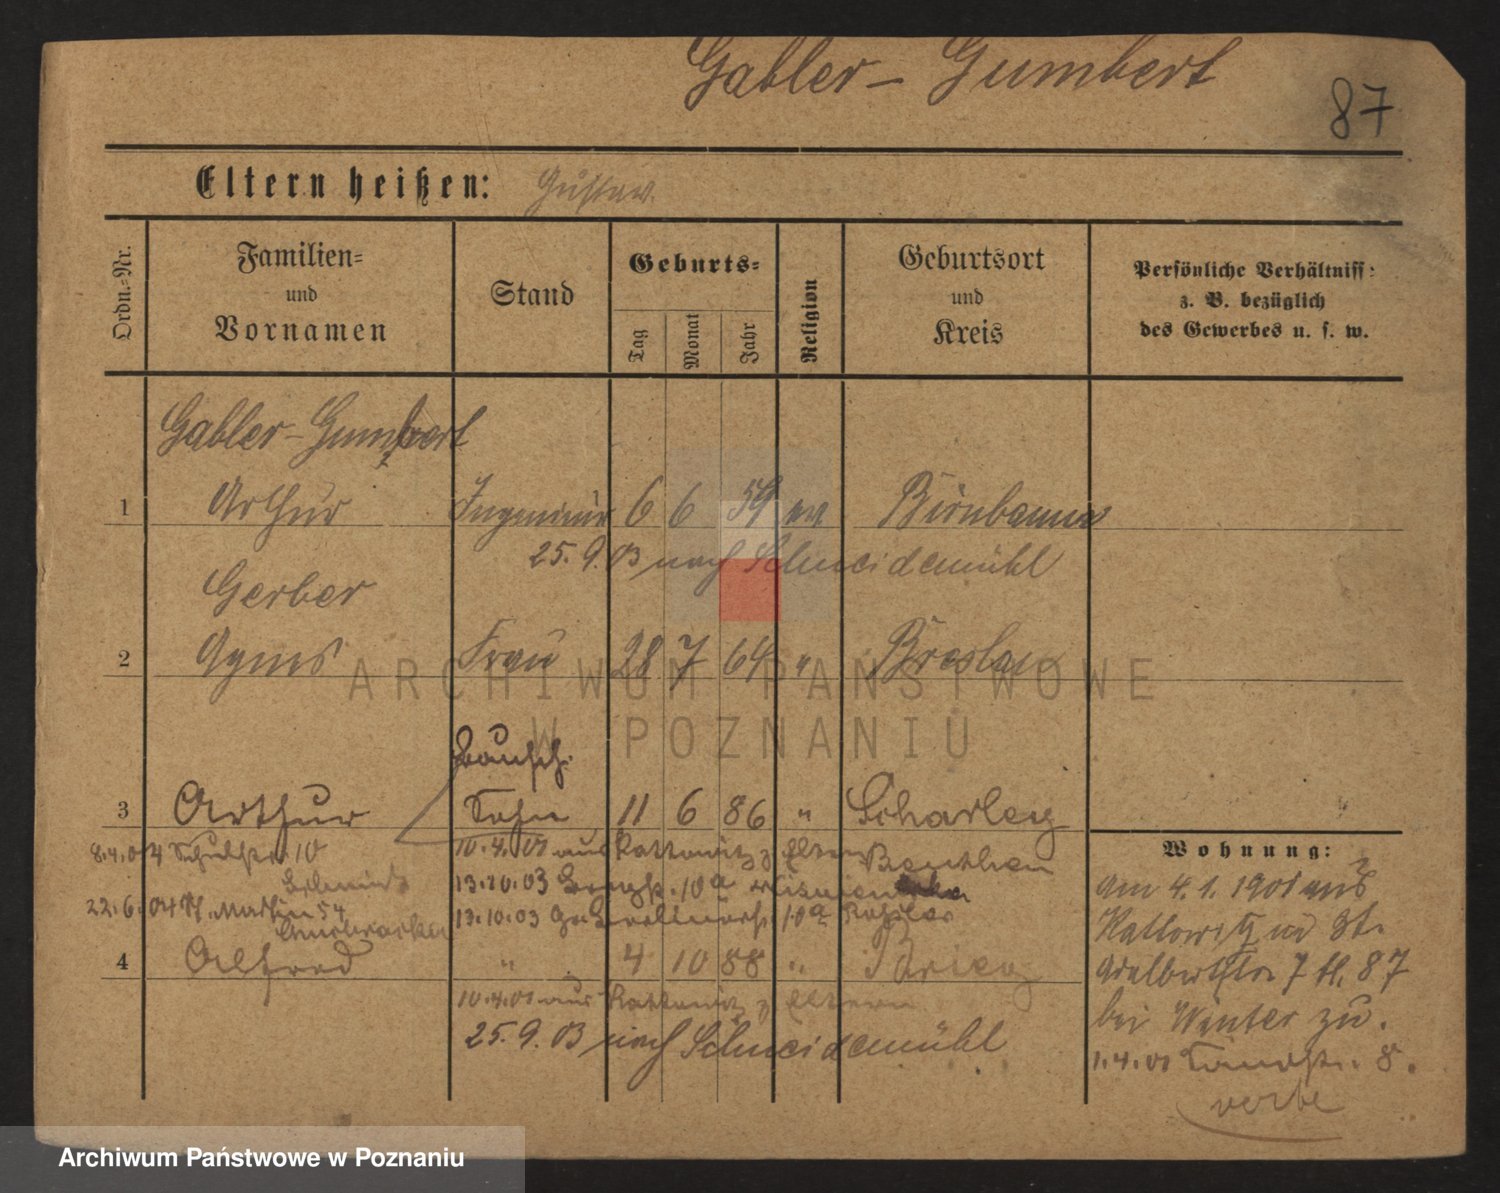 Gabler-Gumbert
87
Eltern heißen: Gustav.
Ordn.-Nr.
Familien- und Vornamen
Stand
Geburts-
Tag
Monat
Jahr
Religion
Geburtsort und Kreis
Persönliche Verhältniss:
z. B. bezüglich
des Gewerbes u. s. w.
Gabler-Gumbert
1 Arthur Ingenieur 6 6 59 ev Birnbaum
25.9.03 nach Schneidemühl
Gerber
2 Agnes Frau 28 7 64 " Breslau
ARCHIWUM PAŃSTWOWE
W POZNANIU
3 Arthur Sohn 11 6 86 " Scharley
Beuthen
8.4.04 Schulstr. 10
10.4.01 aus Kattowitz z Eltern
13.10.03 10a
22.6.04 St. Martin 54
13.10.03 10a
4 Alfred " 4 10 88 " Brieg
10.4.01 aus Kattowitz z Eltern
25.9.03 nach Schneidemühl
Wohnung:
Am 4.1.1901 aus
Kattowitz nd St.
Adalbertstr 7 II. 87
bei Winter zu.
1.4.01 8.
Archiwum Państwowe w Poznaniu